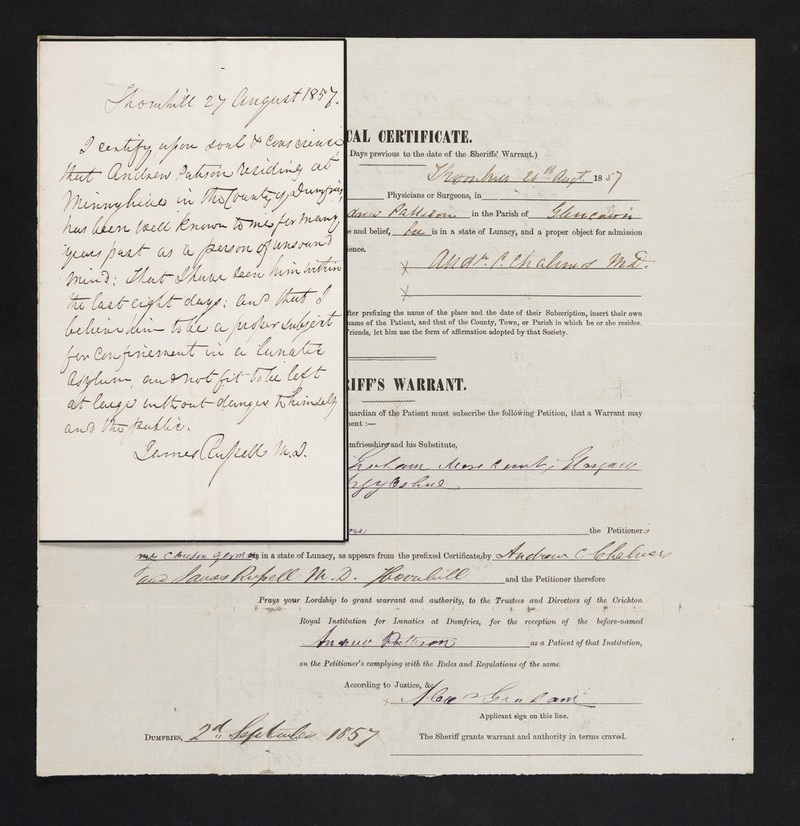 Thornhill 27 August 1857.
I certify upon soul & conscience
that Andrew Patison residing at
Minnyhive in the County of Dumfries,
has been well known to me for many
years past as a person of unsound
mind: That I have seen him within
the last eight days: and that I
believe him to be a proper subject
for confinement in a lunatic
asylum, and not fit to be left
at large without danger to himself
and the public.
James Russell M.D.
CAL CERTIFICATE.
Days previous to the date of the Sheriffs' Warrant.)
26th Augt. 1857
Physicians or Surgeons, in
drew Pattison in the Parish of Glencairn
e and belief, he is in a state of Lunacy, and a proper object for admission
ience.
X Andw. C. Chalmers M.D.
X
fter prefixing the name of the place and the date of their Subscription, insert their own
name of the Patient, and that of the County, Town, or Parish in which he or she resides.
Friends, let him use the form of affirmation adopted by that Society.
RIFF'S WARRANT.
uardian of the Patient must subscribe the following Petition, that a Warrant may
ment :—
mfriesshire and his Substitute,
Graham Glasgow
the Petitioner
is in a state of Lunacy, as appears from the prefixed Certificate by Andrew C Chalmers
and James Russell M.D. Thornhill and the Petitioner therefore
Prays your Lordship to grant warrant and authority, to the Trustees and Directors of the Crichton
Royal Institution for Lunatics at Dumfries, for the reception of the before-named
Andrew Pattison as a Patient of that Institution,
on the Petitioner's complying with the Rules and Regulations of the same.
According to Justice, &c.
Graham
Applicant sign on this line.
Dumfries, 2d September 1857 The Sheriff grants warrant and authority in terms craved.